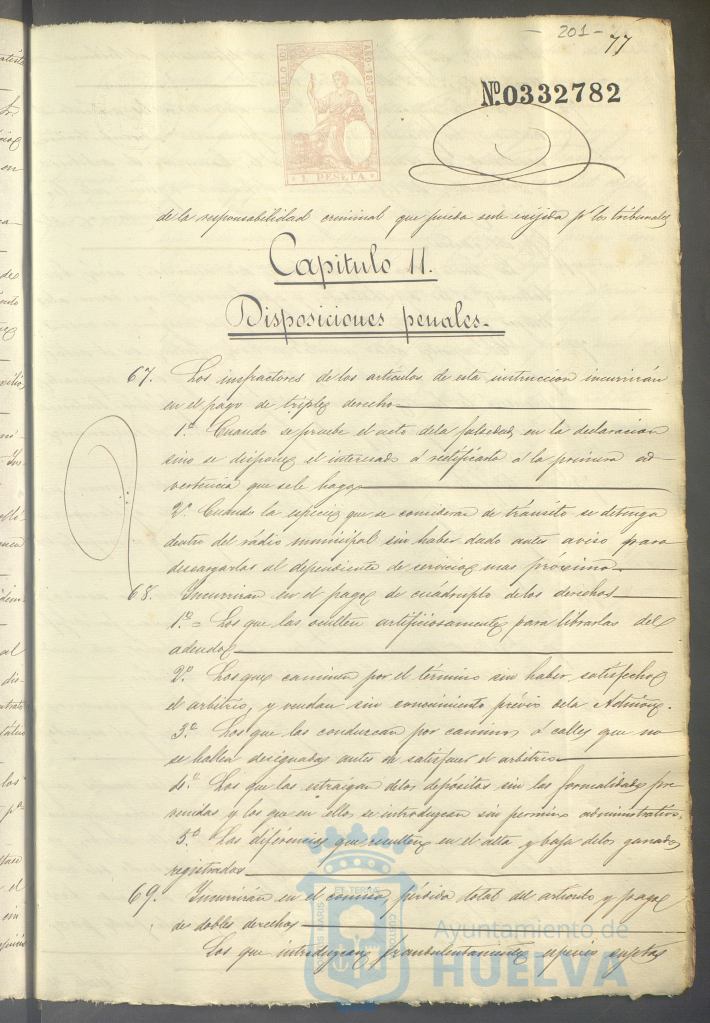 - 201 - 77
SELLO 10º AÑO 1875
1 PESETA
Nº 0332782
de la responsabilidad criminal que pueda serle exijida pr los tribunales
Capitulo 11.
Disposiciones penales.
67. Los infractores de los articulos de esta instruccion incurrirán
en el pago de triple derecho
1º Cuando se pruebe el acto dela falsedad en la declaracion
sino se dispone el interesado á rectificarla á la primera ad
vertencia que sele haga
2º Cuando la especie que se consideran de tránsito se detenga
dentro del rádio municipal sin haber dado antes aviso para
descargarlas al dependiente de servicio mas próximo
68. Incurrirán en el pago de cuádruplo delos derechos
1º = Los que las oculten artificiosamente para librarlas del
adeudo
2º Los que caminen por el término sin haber satisfecho
el arbitrio, y vendan sin conocimiento prévio dela Admon.
3º Los que las conduzcan por caminos ó calles que no
se hallen designadas antes de satisfacer el arbitrio
4º Los que las estraigan delos depósitos sin las formalidades pre
venidas y los que en ellos se introduzcan sin permiso administrativo.
5º Las diferencias que resulten en el alta y baja delos ganados
registrados
69. Incurirán en el comiso, pérdida total del articulo y pago
de dobles derechos
Los que introduzcan fraudulentamente especies sujetas
Ayuntamiento de
HUELVA